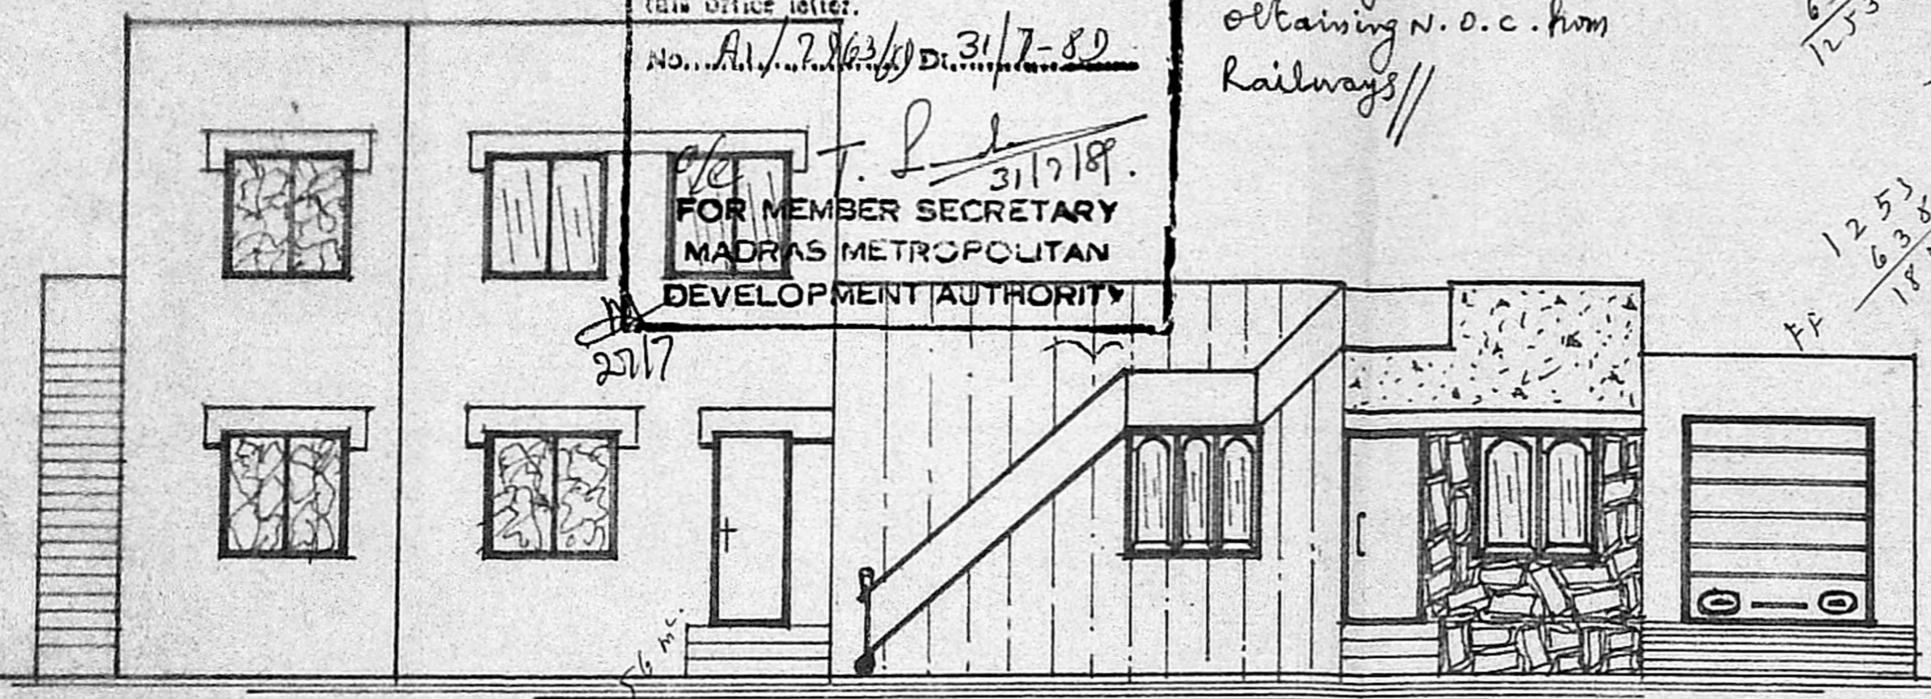 this Office letter.
No. A1/ Dt. 31/7-89
31/7/89.
FOR MEMBER SECRETARY
MADRAS METROPOLITAN
DEVELOPMENT AUTHORITY
27/7
obtaining N.O.C. from
Railways//
1253
1253
638
FF